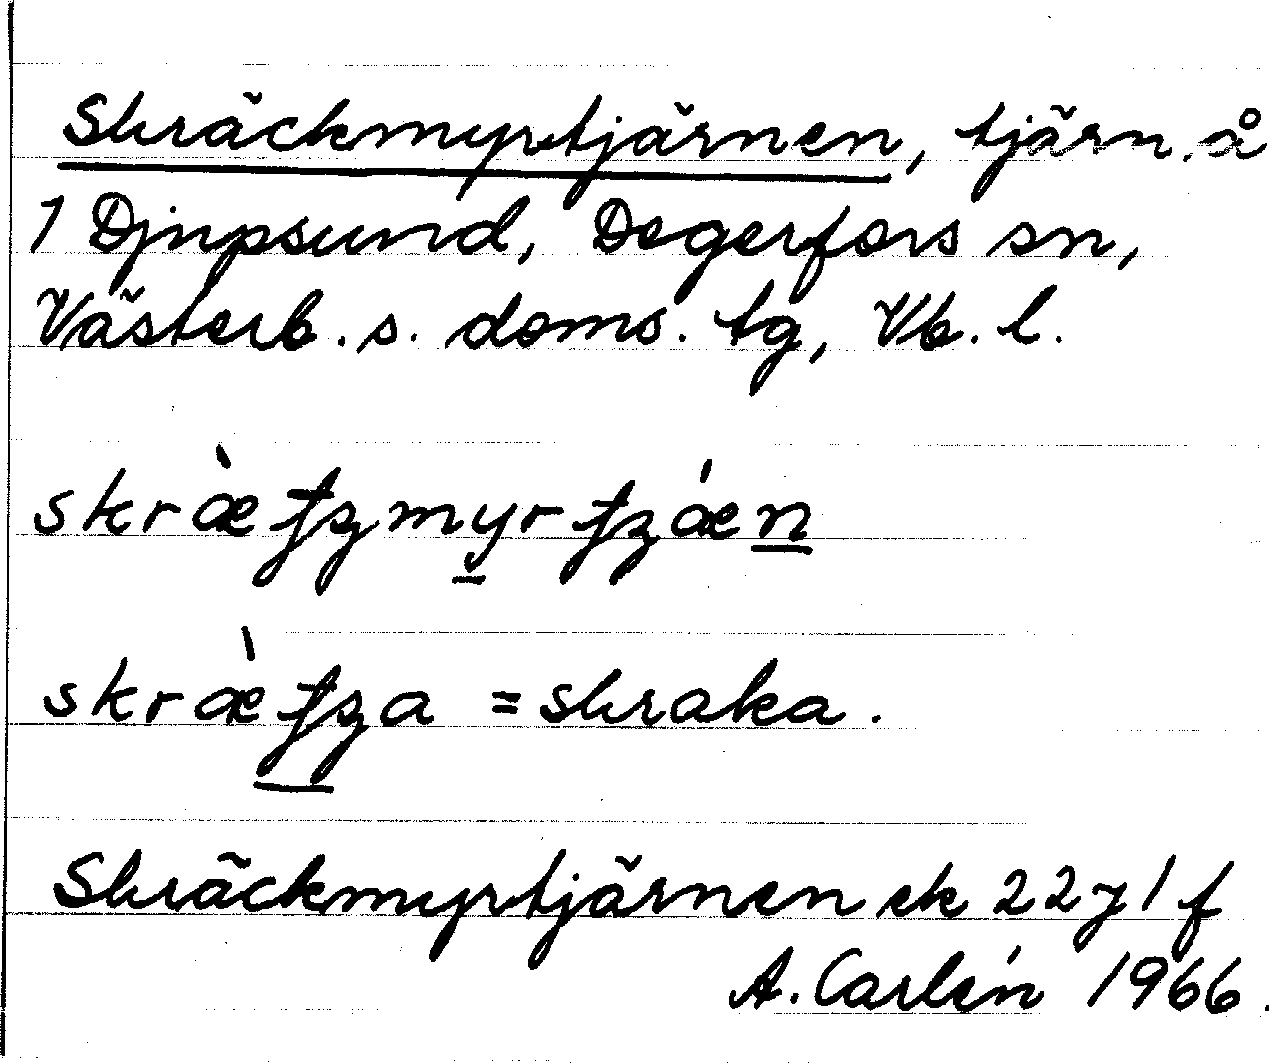 Skräckmyrtjärnen, tjärn å
1 Djupsund, Degerfors sn,
Västerb. s. doms. tg, Vb. l.
skræ̀ʈʂmyrʈʂǽn
skræ̀ʈʂa = skraka.
Skräckmyrtjärnen ek 22 J 1 f
A. Carlén 1966.